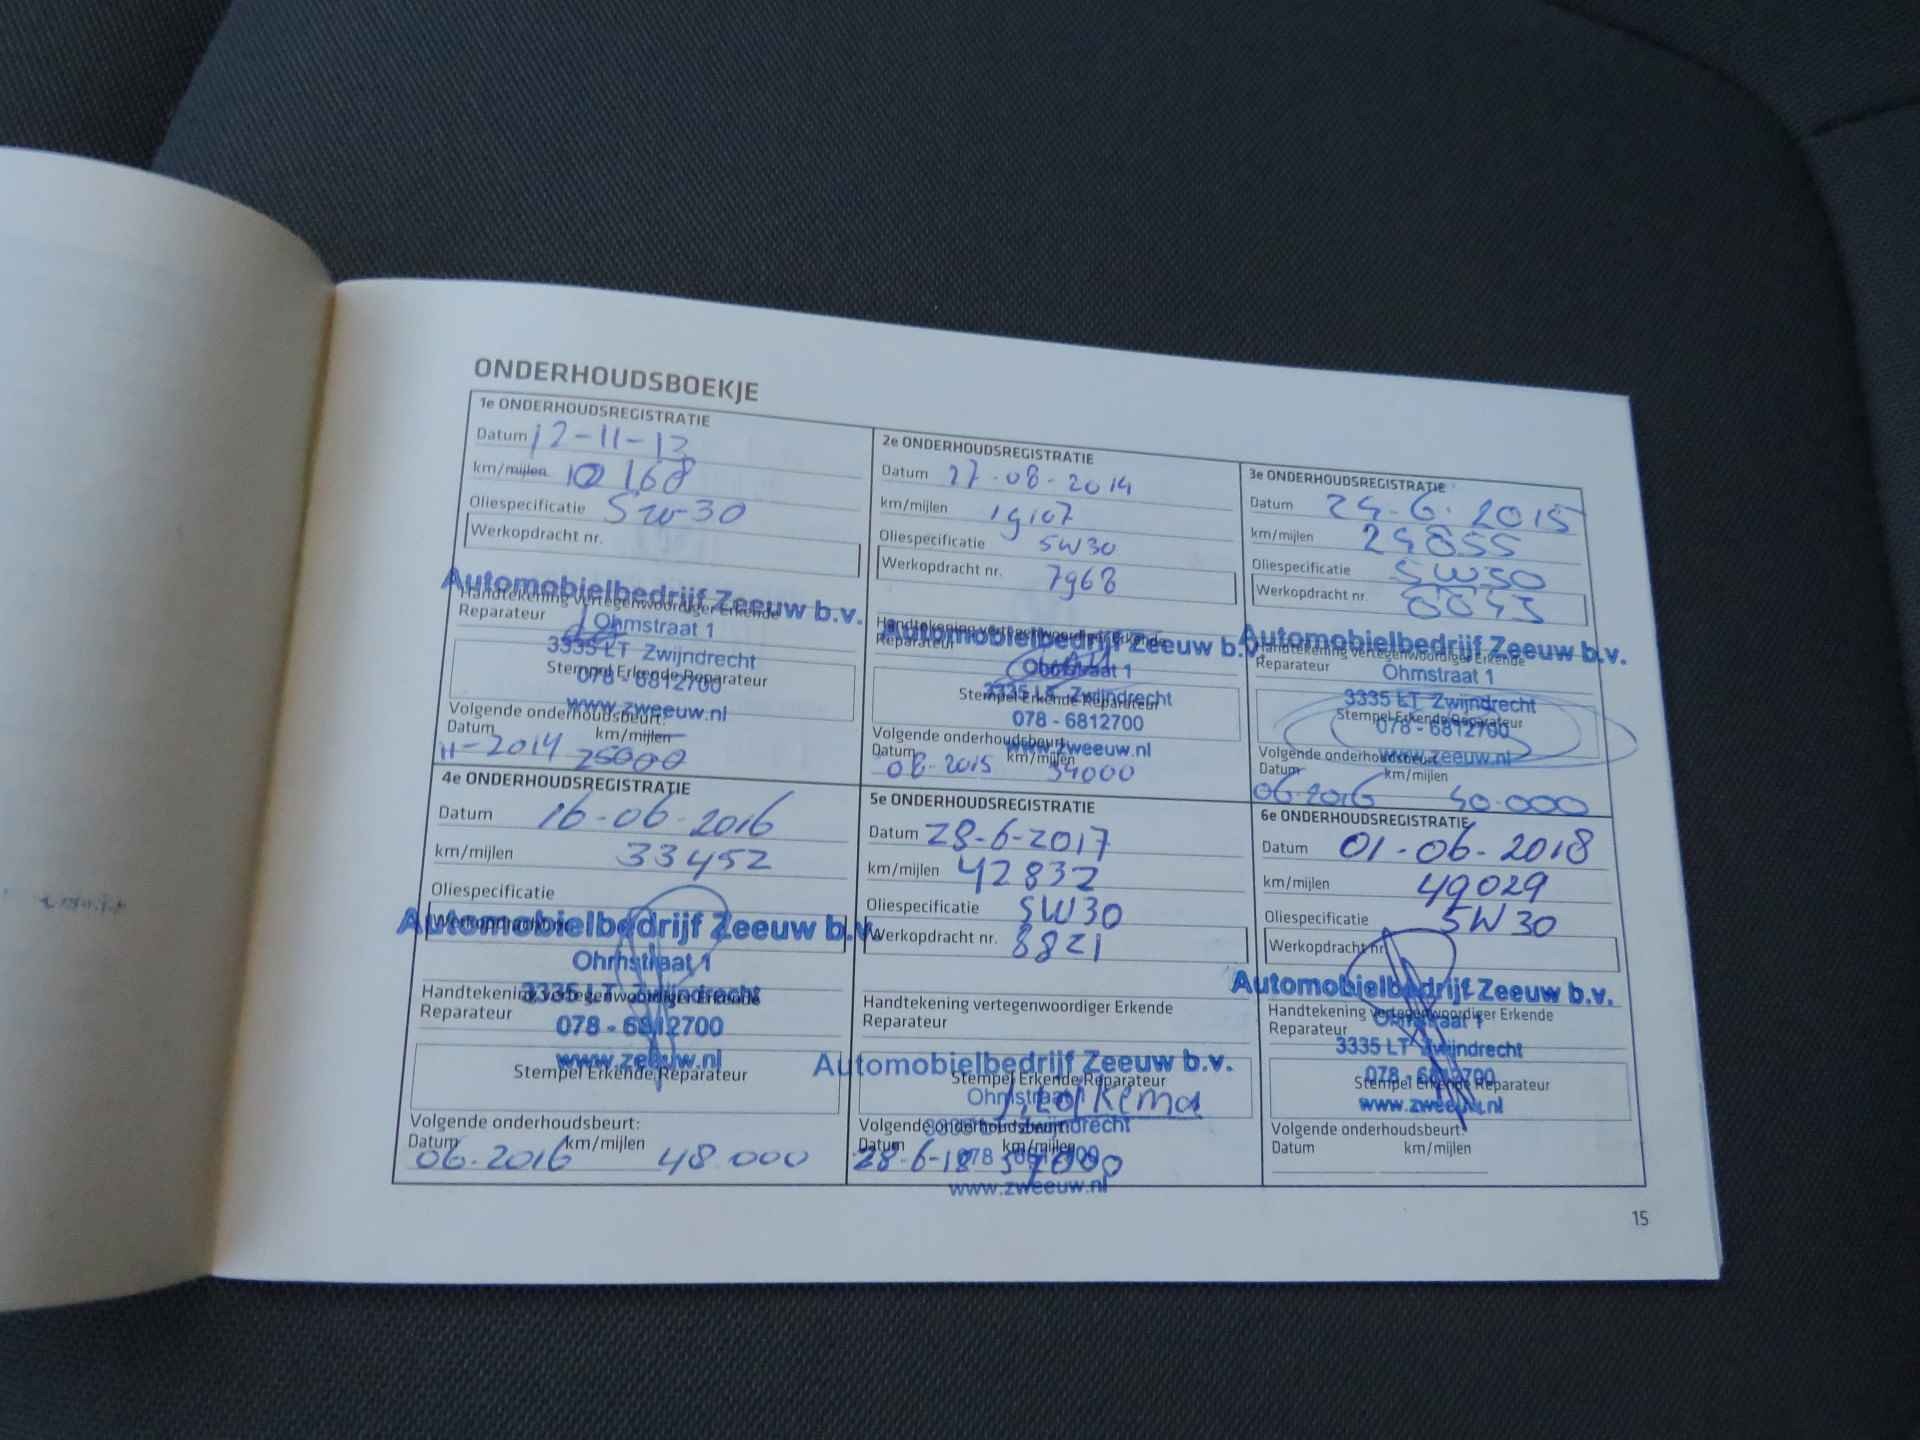 ONDERHOUDSBOEKJE
1e ONDERHOUDSREGISTRATIE
Datum 12-11-13
km/mijlen 10 168
Oliespecificatie 5w-30
Werkopdracht nr.
Automobielbedrijf Zeeuw b.v.
Handtekening vertegenwoordiger Erkende
Reparateur
Ohmstraat 1
3335 LT Zwijndrecht
Stempel Erkende Reparateur
078 - 6812700
www.zweeuw.nl
Volgende onderhoudsbeurt:
Datum km/mijlen
11-2014 25000
2e ONDERHOUDSREGISTRATIE
Datum 27-08-2014
km/mijlen 19107
Oliespecificatie 5W30
Werkopdracht nr. 7968
Handtekening vertegenwoordiger Erkende
Automobielbedrijf Zeeuw b.v.
Reparateur
Ohmstraat 1
3335 LT Zwijndrecht
Stempel Erkende Reparateur
078 - 6812700
Volgende onderhoudsbeurt:
www.zweeuw.nl
Datum km/mijlen
08-2015 34000
3e ONDERHOUDSREGISTRATIE
Datum 24-6-2015
km/mijlen 24855
Oliespecificatie 5W30
Werkopdracht nr.
Automobielbedrijf Zeeuw b.v.
Handtekening vertegenwoordiger Erkende
Reparateur
Ohmstraat 1
3335 LT Zwijndrecht
Stempel Erkende Reparateur
078 - 6812700
www.zweeuw.nl
Volgende onderhoudsbeurt:
Datum km/mijlen
06-2016 40.000
4e ONDERHOUDSREGISTRATIE
Datum 16-06-2016
km/mijlen 33452
Oliespecificatie
Automobielbedrijf Zeeuw b.v.
Werkopdracht nr.
Ohmstraat 1
3335 LT Zwijndrecht
Handtekening vertegenwoordiger Erkende
Reparateur
078 - 6812700
www.zweeuw.nl
Stempel Erkende Reparateur
Volgende onderhoudsbeurt:
Datum km/mijlen
06-2016 48.000
5e ONDERHOUDSREGISTRATIE
Datum 28-6-2017
km/mijlen 42832
Oliespecificatie 5W30
Werkopdracht nr. 8821
Handtekening vertegenwoordiger Erkende
Reparateur
Automobielbedrijf Zeeuw b.v.
Stempel Erkende Reparateur
Ohmstraat 1
Volgende onderhoudsbeurt:
3335 LT Zwijndrecht
Datum km/mijlen
078 - 6812700
28-6-18 57000
www.zweeuw.nl
6e ONDERHOUDSREGISTRATIE
Datum 01-06-2018
km/mijlen 49029
Oliespecificatie 5W30
Werkopdracht nr.
Automobielbedrijf Zeeuw b.v.
Handtekening vertegenwoordiger Erkende
Reparateur
Ohmstraat 1
3335 LT Zwijndrecht
078 - 6812700
Stempel Erkende Reparateur
www.zweeuw.nl
Volgende onderhoudsbeurt:
Datum km/mijlen
15